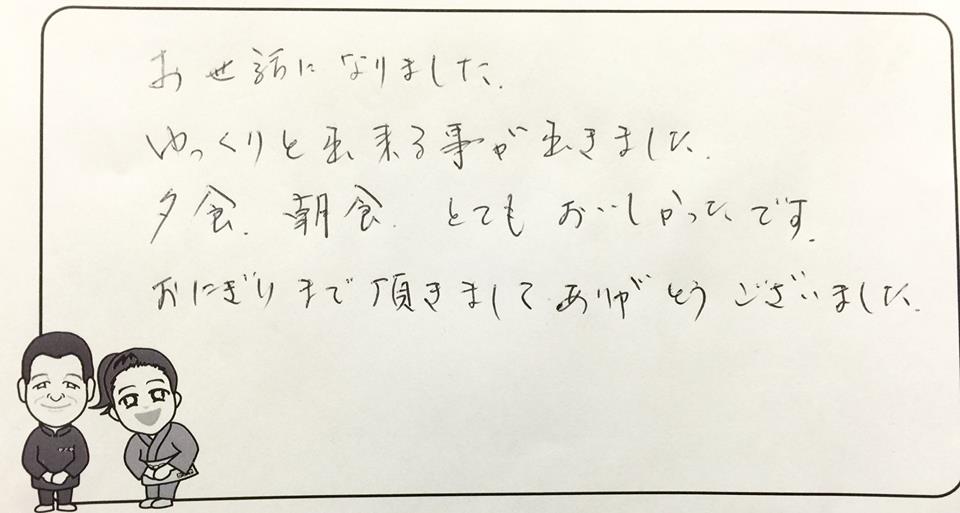 お世話になりました.
ゆっくりと出来る事が出きました.
夕食.朝食.とてもおいしかったです.
おにぎりまで頂きましてありがとうございました.